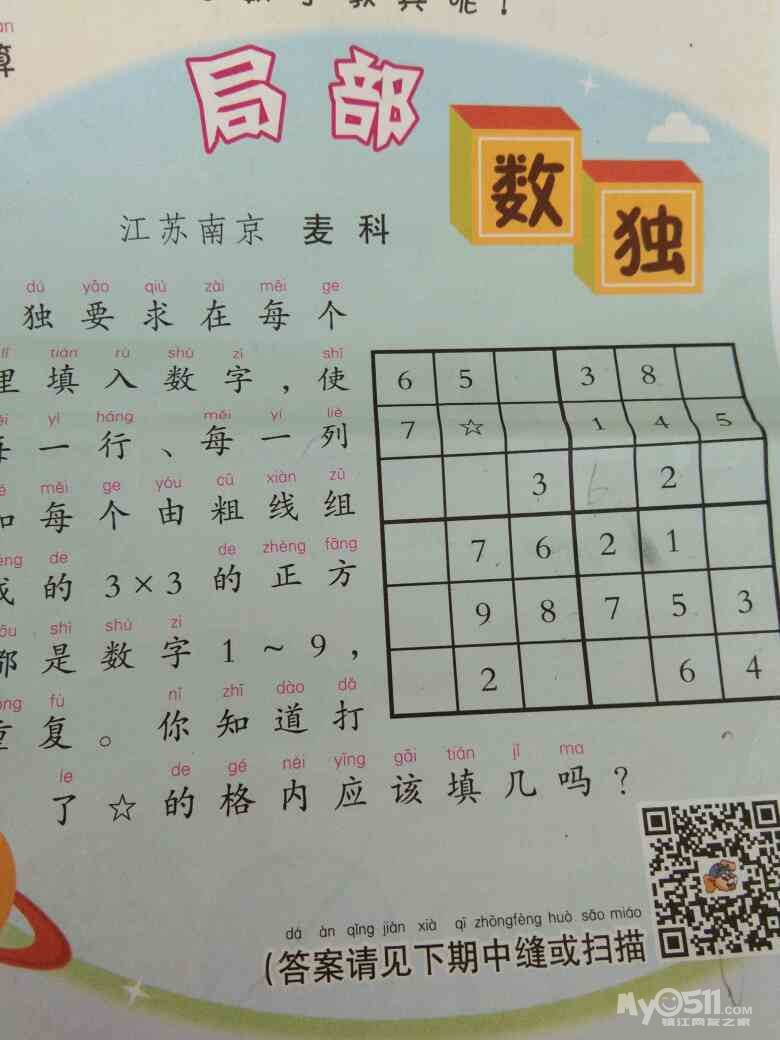 算
局部
数独
江苏南京 麦科
dú yāo qiú zài měi ge
独要求在每个
tián rù shù zì shǐ
里填入数字，使
yì háng měi yí liè
每一行、每一列
měi ge yóu cū xiàn zǔ
和每个由粗线组
de de zhèng fāng
成的3×3的正方
shì shù zì
都是数字1～9，
fù nǐ zhī dào dǎ
重复。你知道打
le de gé nèi yīng gāi tián jǐ ma
了☆的格内应该填几吗？
6 5 3 8
7 ☆ 1 4 5
3 6 2
7 6 2 1
9 8 7 5 3
2 6 4
dá àn qǐng jiàn xià qī zhōngfèng huò sǎo miáo
(答案请见下期中缝或扫描
My0511.com
镇江网友之家